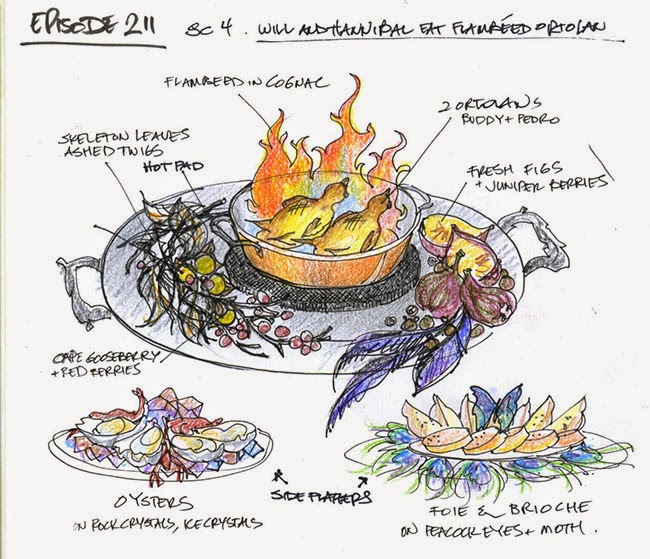 EPISODE 211 SC 4. WILL AND HANNIBAL EAT FLAMBÉED ORTOLAN
FLAMBEED IN COGNAC
2 ORTOLANS
BUDDY + PEDRO
SKELETON LEAVES
ASHED TWIGS
HOT PAD
FRESH FIGS
+ JUNIPER BERRIES
CAPE GOOSEBERRY/
+ RED BERRIES
OYSTERS
ON ROCK CRYSTALS, ICE CRYSTALS
SIDE PLATTERS
FOIE & BRIOCHE
ON PEACOCK EYES + MOTH.